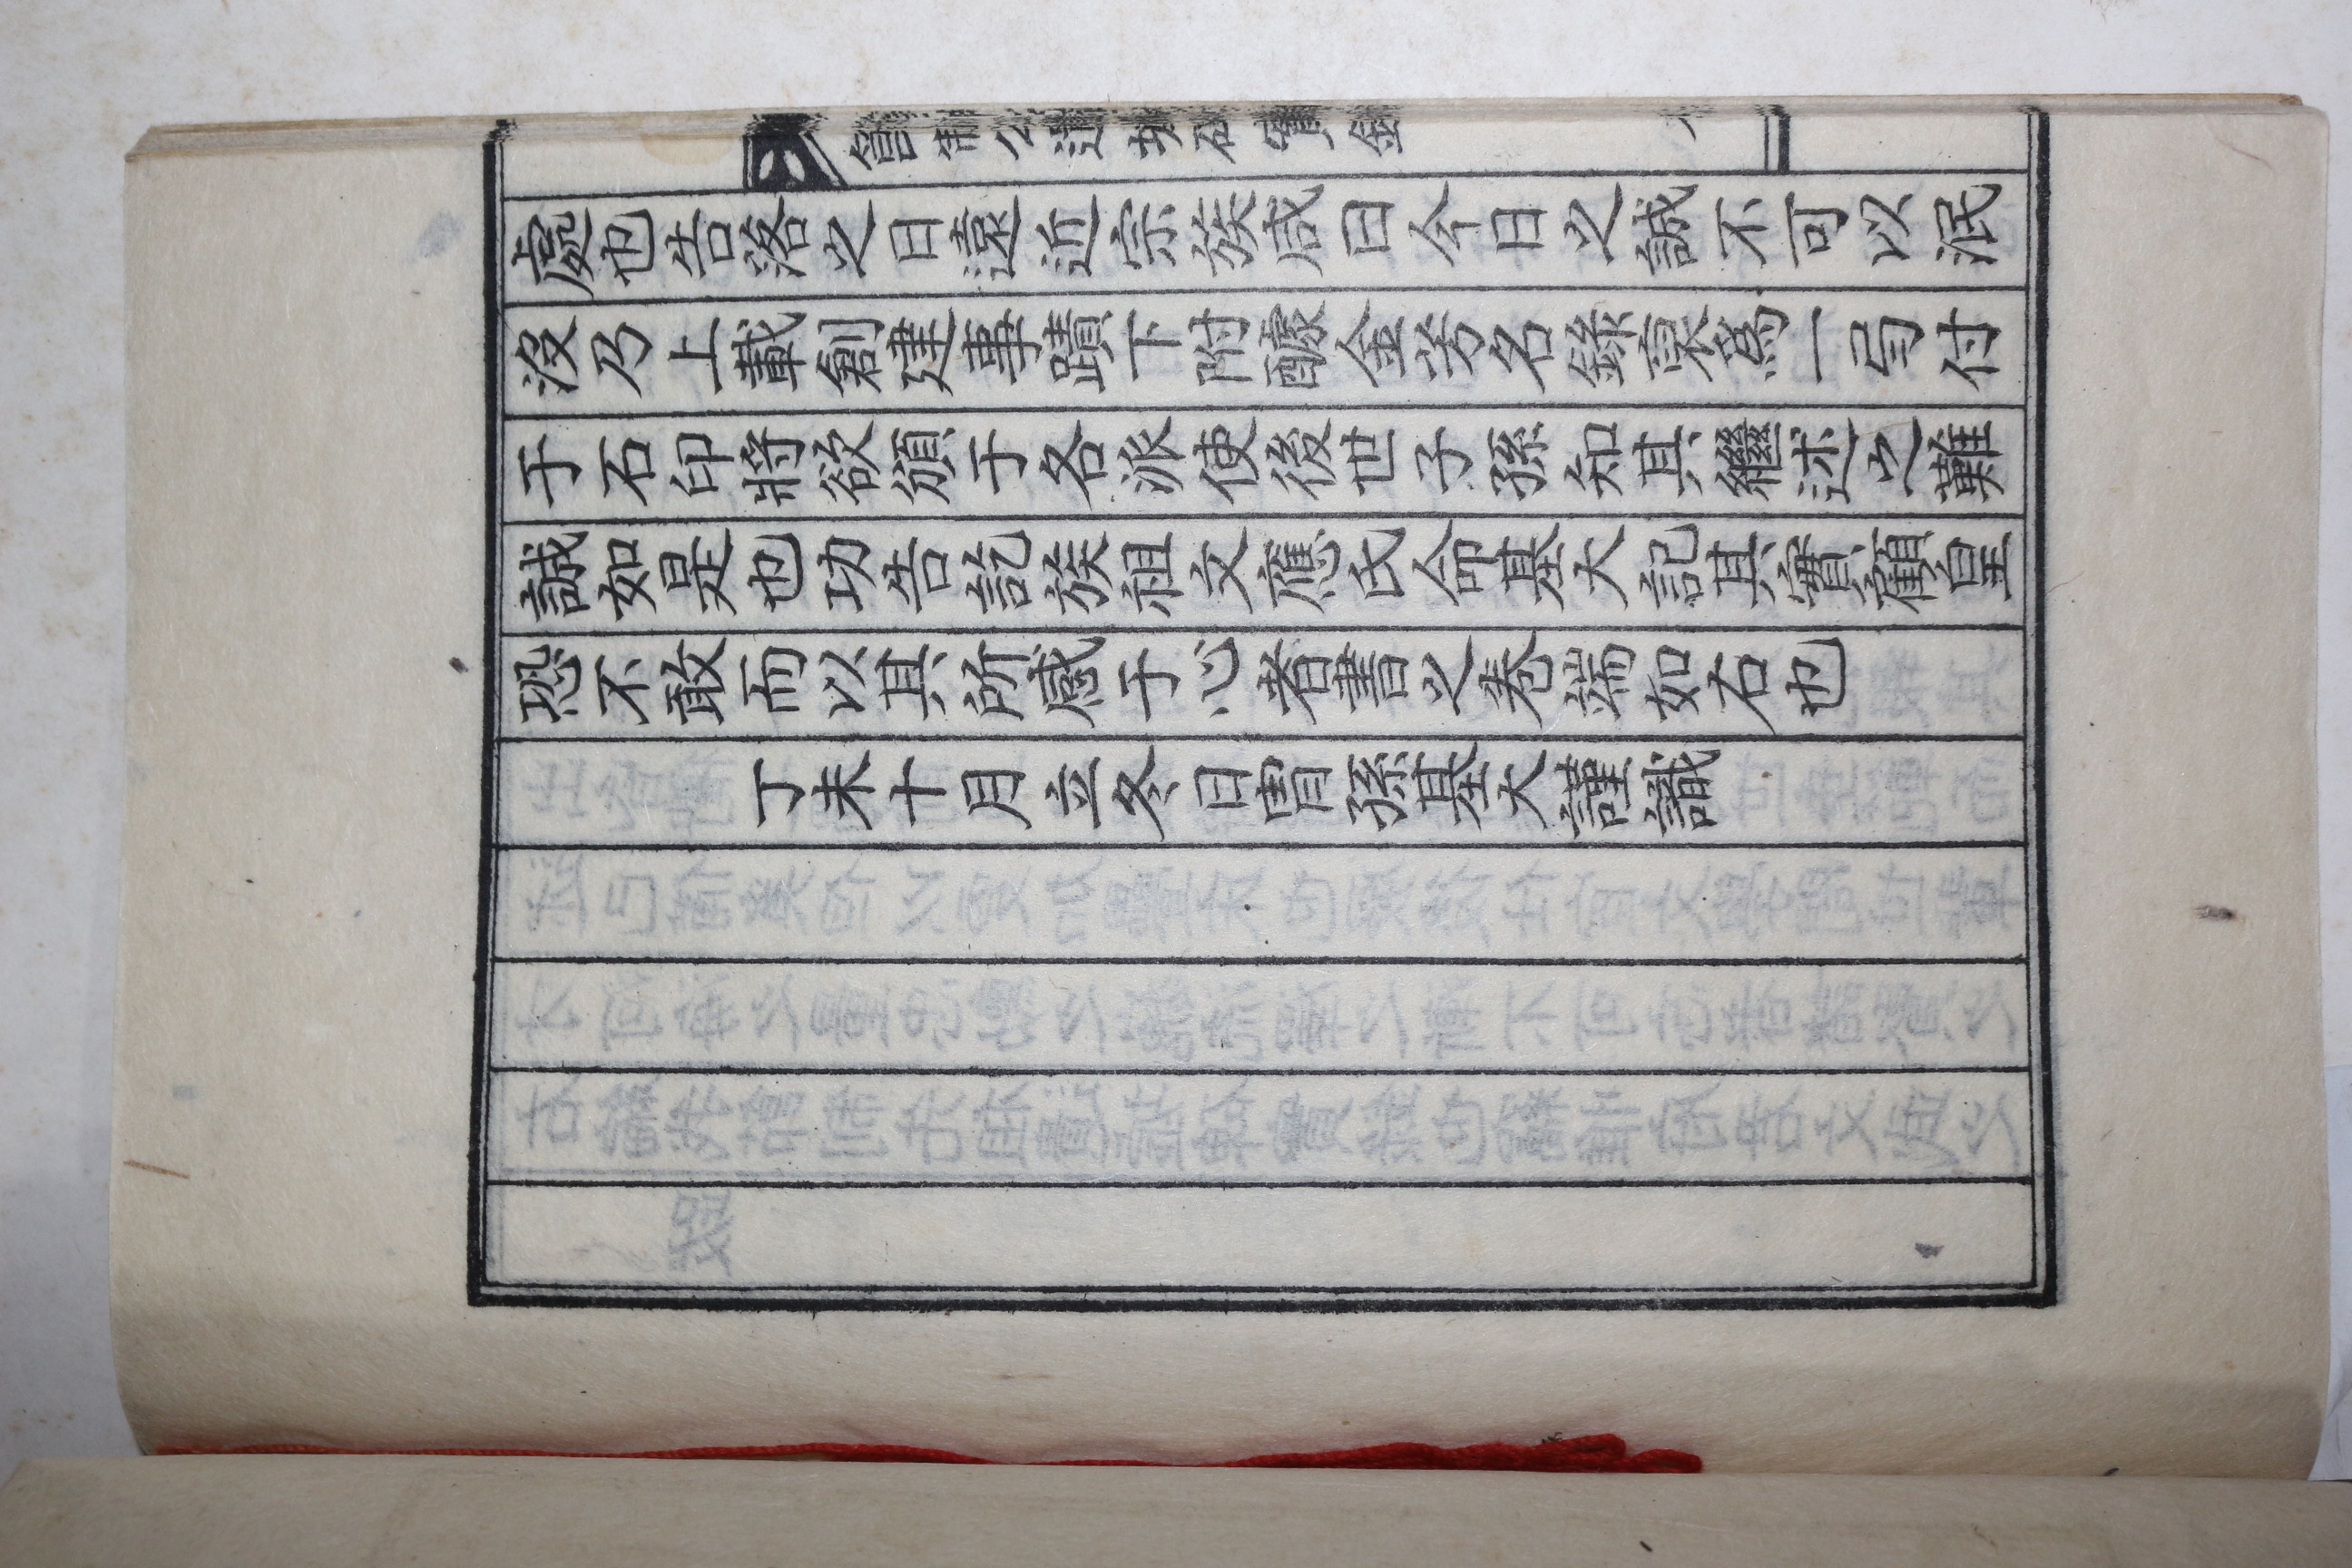 處也告落之日遠近宗族咸曰今日之誠不可以泯
沒乃上載創建事蹟下附醵金芳名錄裒爲一弓付
于石印將欲頒于各派使後世子孫知其繼述之難
誠如是也功告訖族祖文應氏命基大記其實顧皇
恐不敢而以其所感于心者書之卷端如右也
丁未十月立冬日冑孫基大謹識
節制公遺墟碑實錄